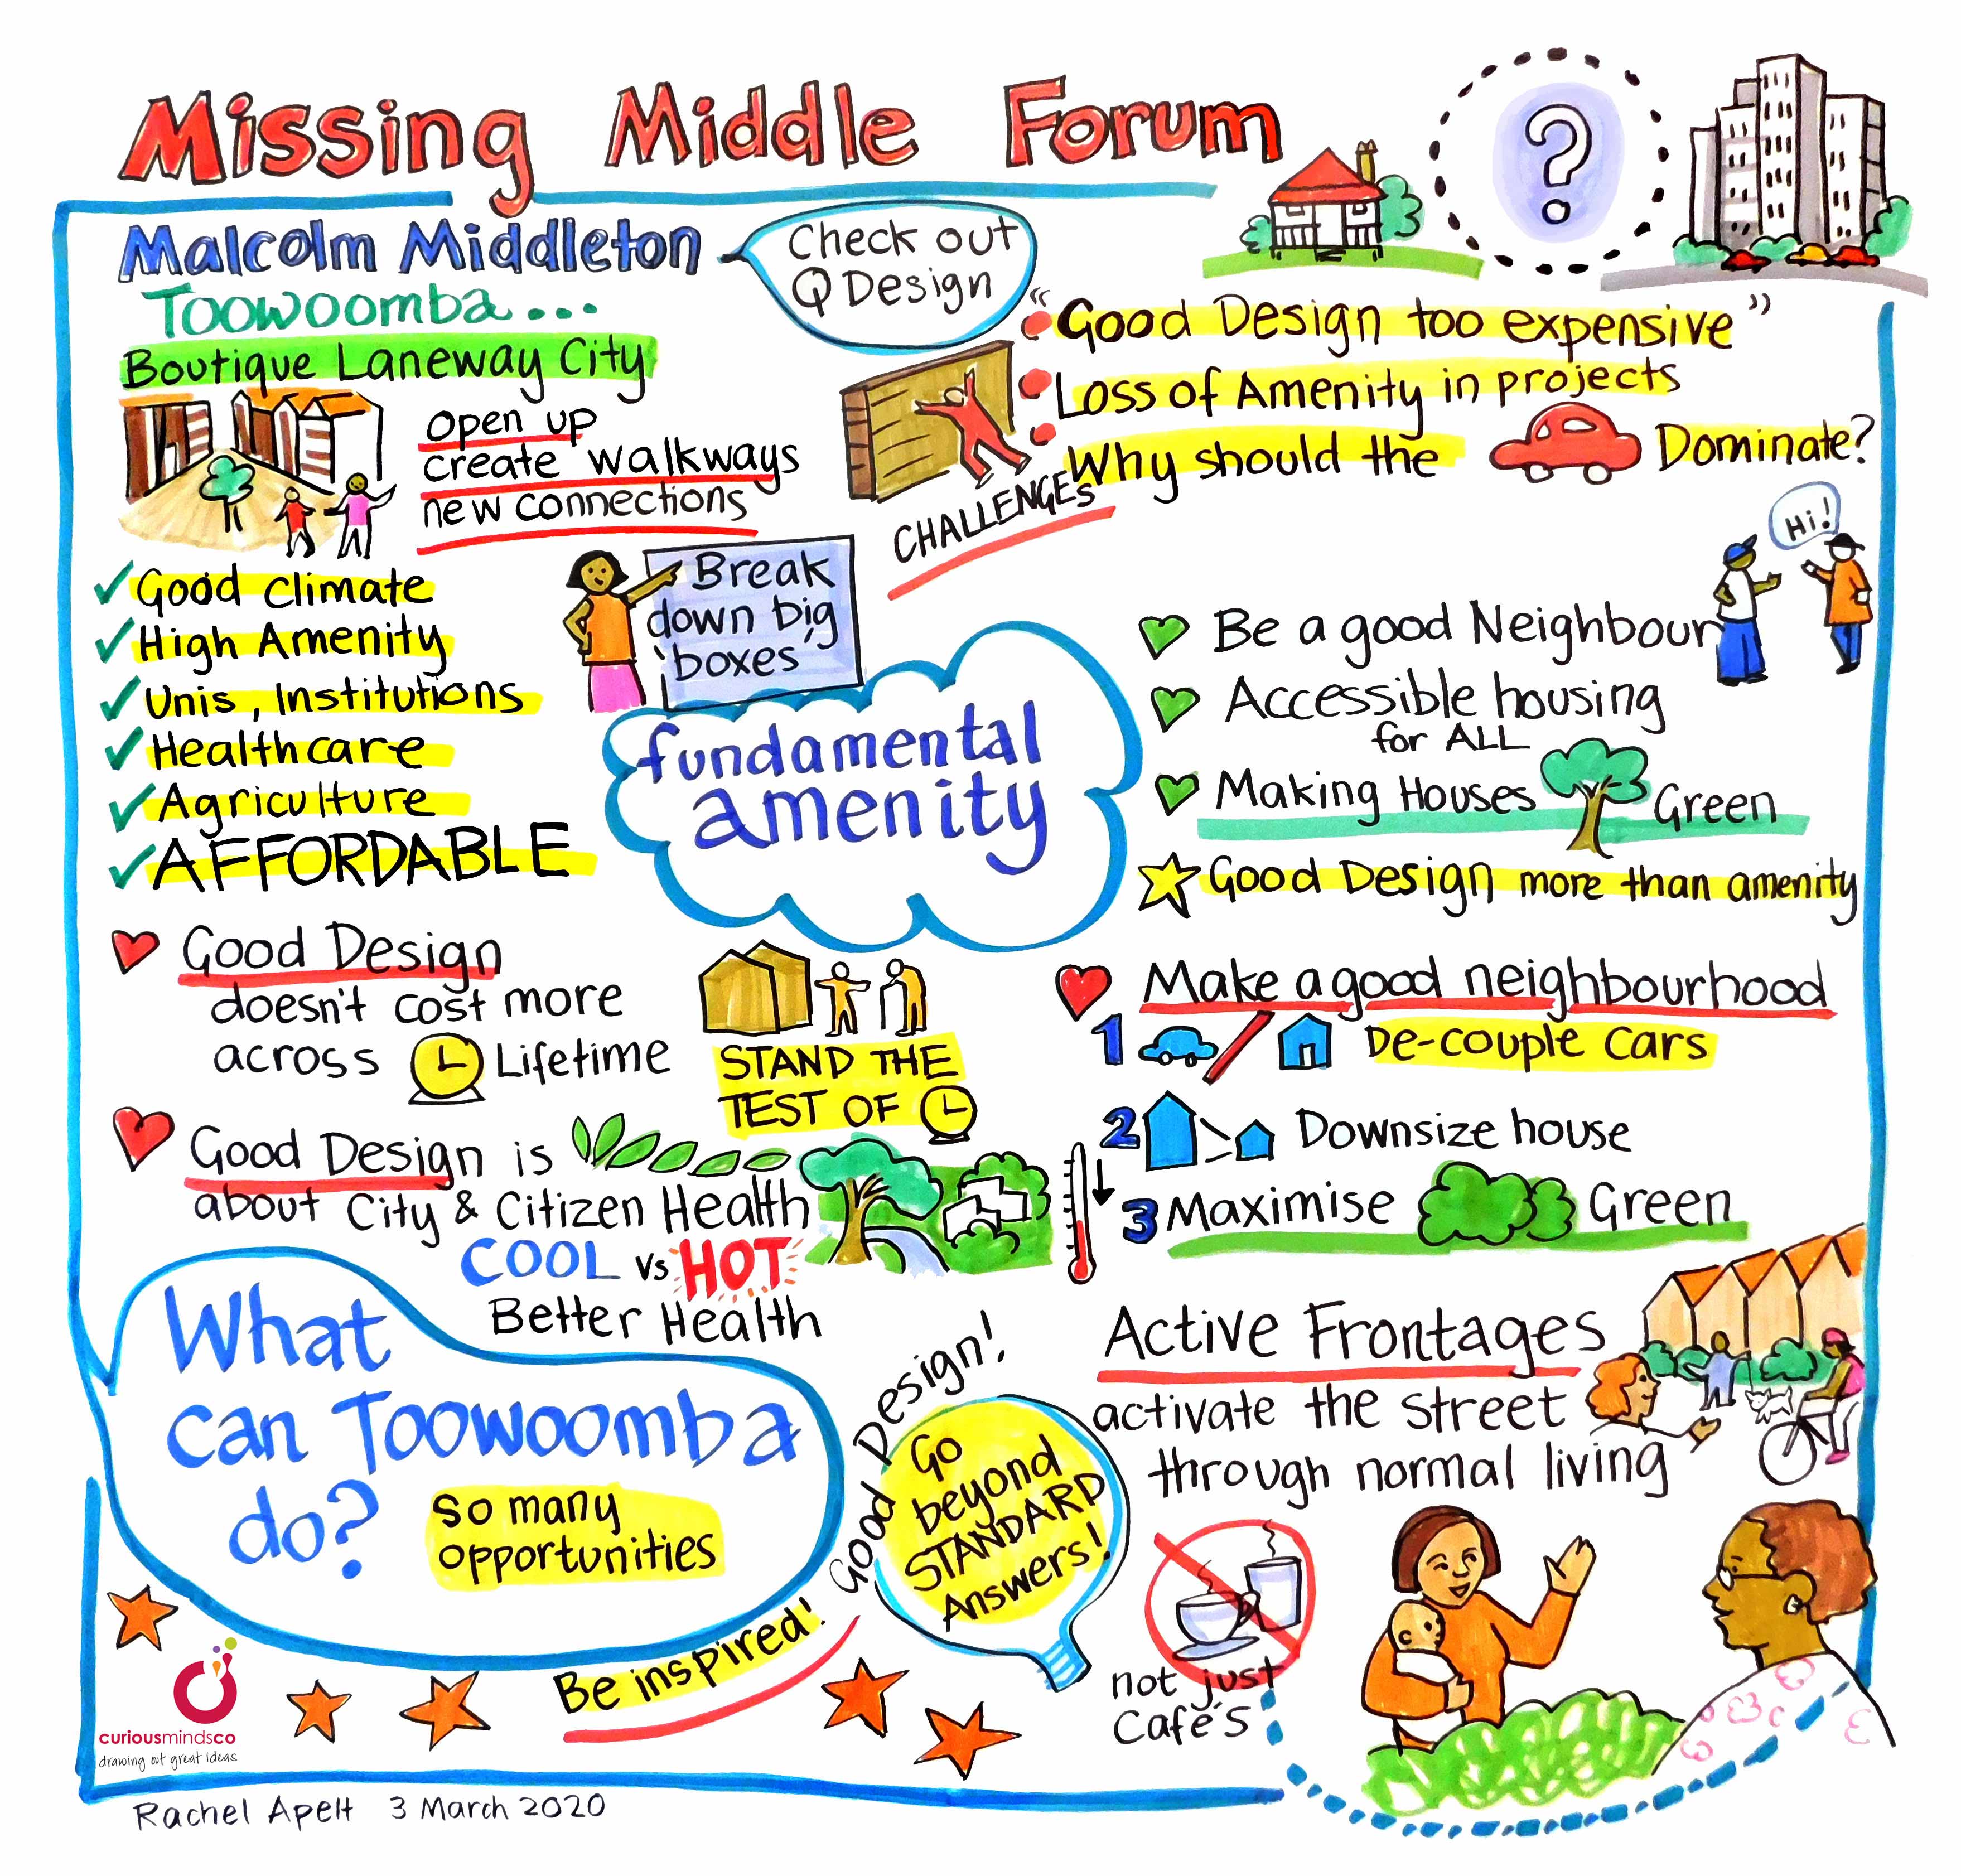 Missing Middle Forum
?
Malcolm Middleton
Check out
Q Design
Toowoomba...
Boutique Laneway City
open up
create walkways
new connections
"Good Design too expensive"
Loss of Amenity in projects
Why should the Dominate?
CHALLENGES
Hi!
✓ Good climate
✓ High Amenity
✓ Unis, Institutions
✓ Healthcare
✓ Agriculture
✓ AFFORDABLE
Break
down big
'boxes'
fundamental
amenity
Be a good Neighbour
Accessible housing
for ALL
Making Houses Green
Good Design more than amenity
Good Design
doesn't cost more
across Lifetime
STAND THE
TEST OF
Good Design is
about City & Citizen Health
COOL vs HOT
Better Health
Make a good neighbourhood
1 De-couple cars
2 > Downsize house
3 Maximise Green
What
can Toowoomba
do?
so many
opportunities
Be inspired!
Good Design!
Go
beyond
STANDARD
Answers!
Active Frontages
activate the street
through normal living
not just
Café's
curiousmindsco
drawing out great ideas
Rachel Apelt 3 March 2020